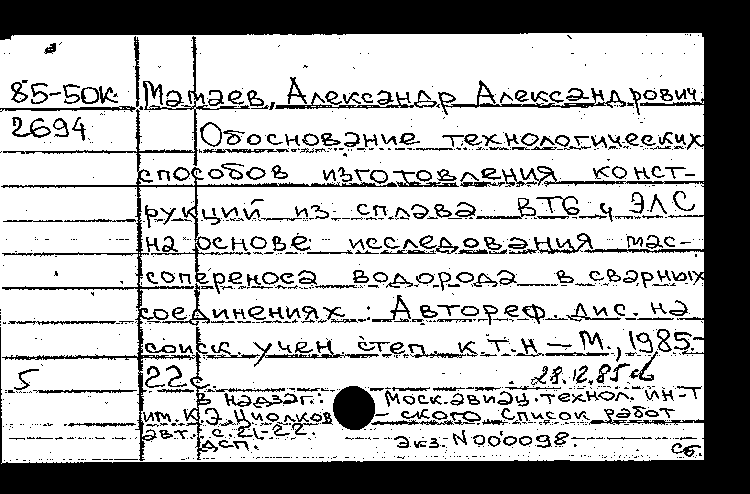 85-50к Мамаев, Александр Александрович.
2694 Обоснование технологических
способов изготовления конст-
рукций из сплава ВТ6 ч ЭЛС
на основе исследования мас-
сопереноса водорода в сварных
соединениях : Автореф. дис. на
соиск. учен. степ. к.т.н — М., 1985.-
5 22с. 28.12.85
В надзаг.: Моск. авиац. технол. ин-т
им. К.Э. Циолков - ского. Список работ
авт. с. 21-22.
ДСП. экз. N 000098. сб.